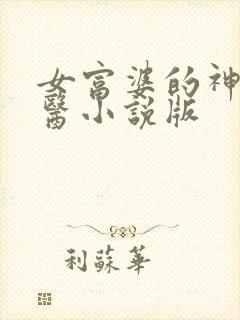 女富婆的神
醫小說版
利蘇華